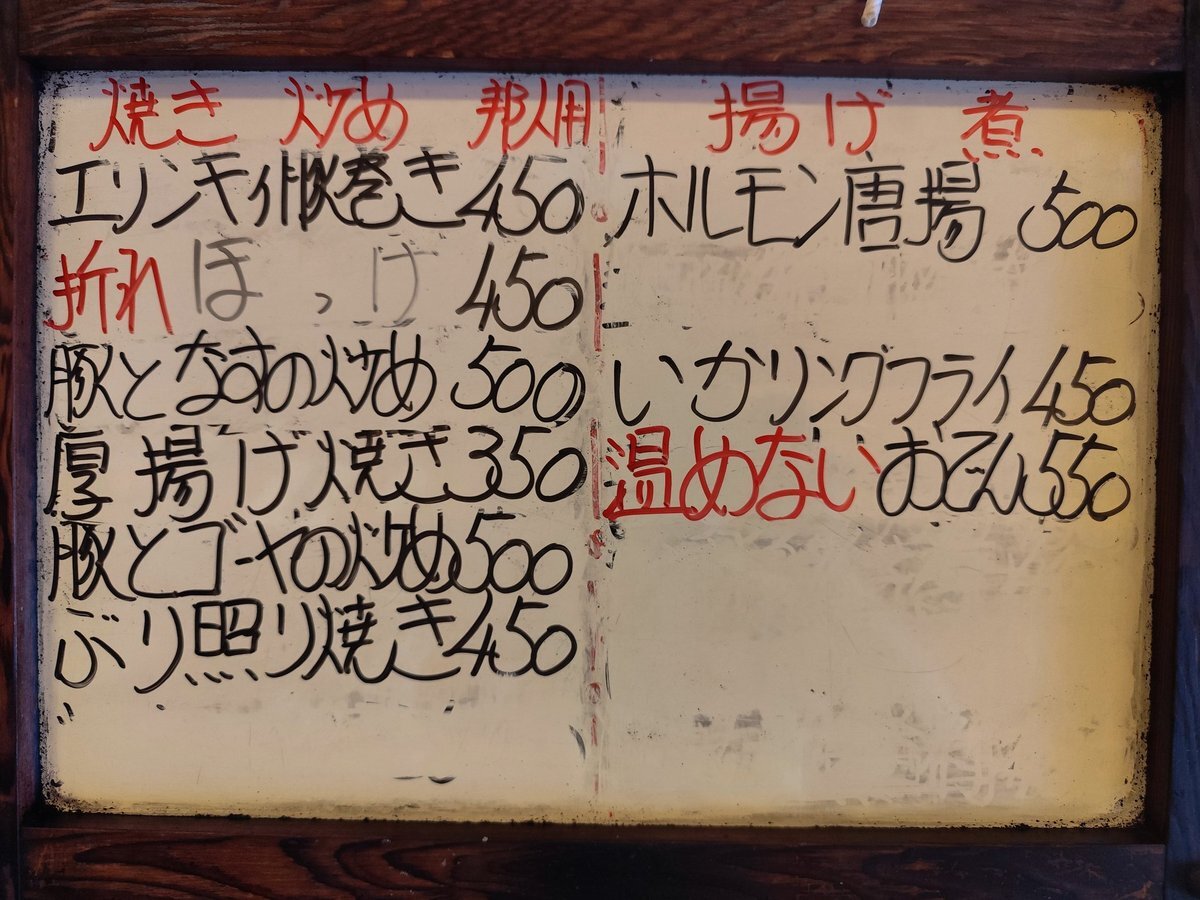 焼き 炒め 邦人用
エリンギィ豚巻き 450
折れ ほっけ 450
豚となすの炒め 500
厚揚げ焼き 350
豚とゴーヤの炒め 500
ぶり照り焼き 450
揚げ 煮
ホルモン唐揚 500
いかリングフライ 450
温めないおでん 550